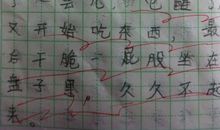 又开始吃东西，最
后干脆一屁股坐在
盘子里，久久不故
去。